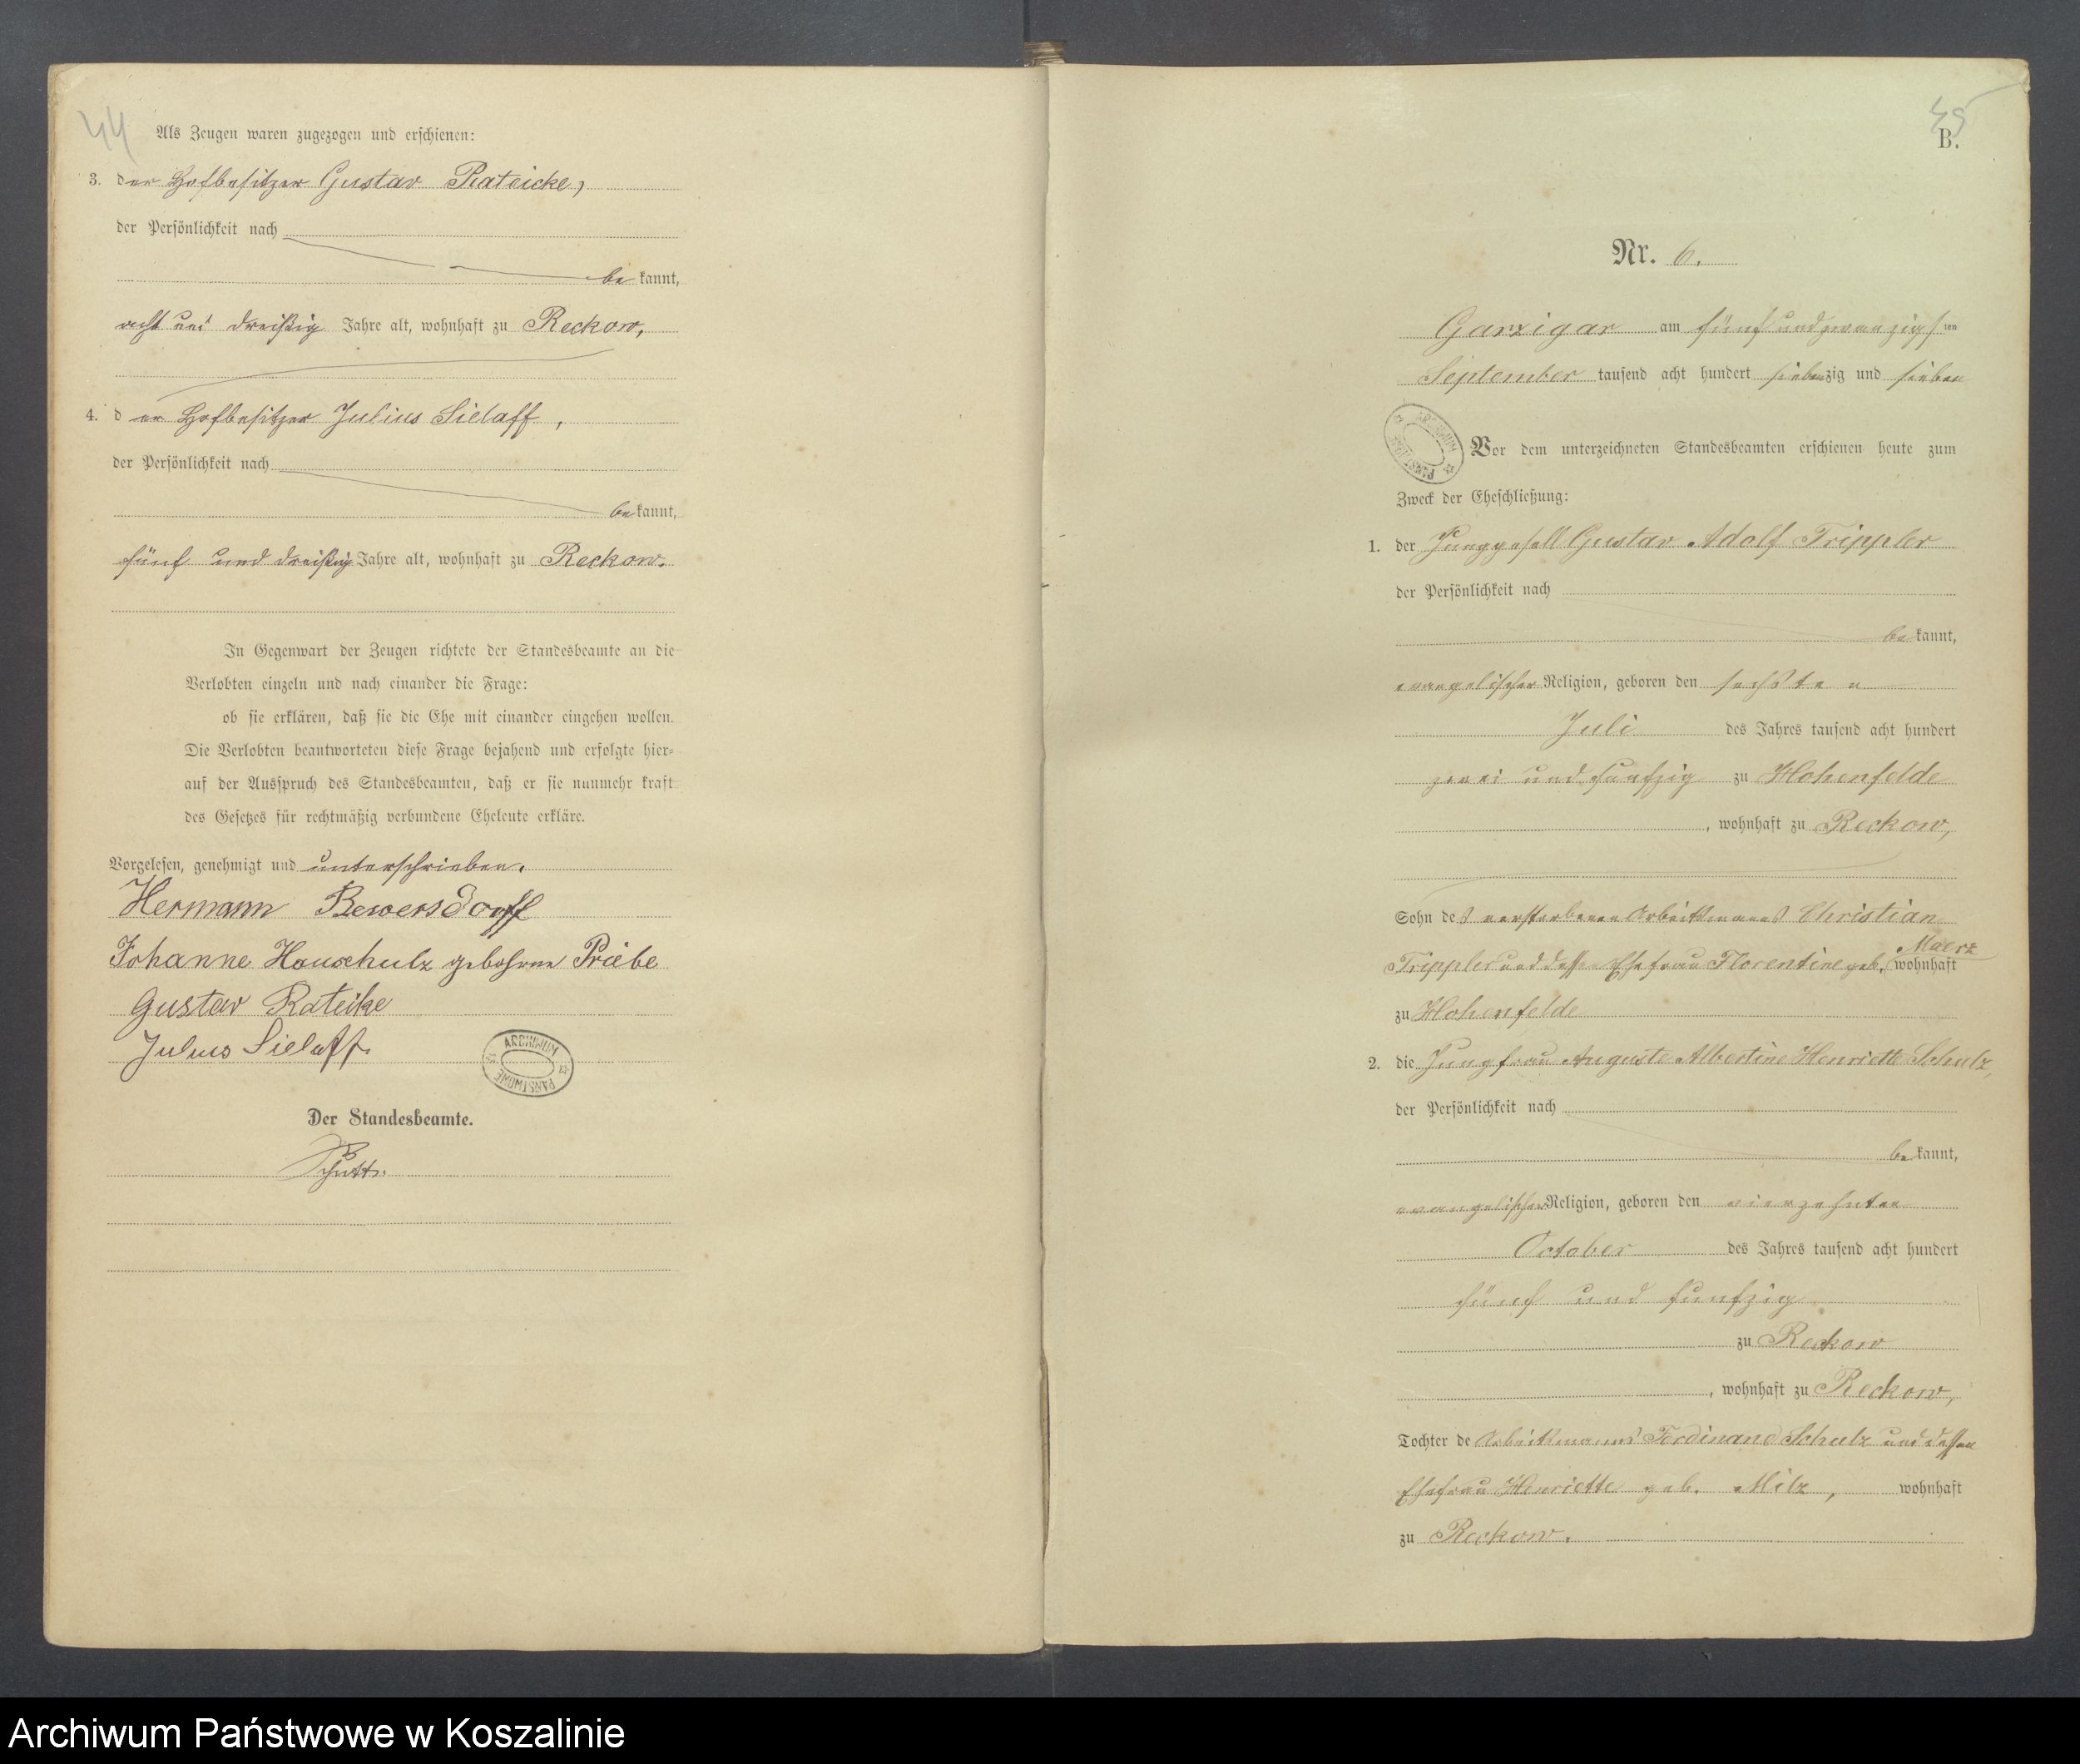 44
Als Zeugen waren zugezogen und erschienen:
3. der Hofbesitzer Gustav Rateicke,
der Persönlichkeit nach
bekannt,
acht und dreißig Jahre alt, wohnhaft zu Reckow,
4. der Hofbesitzer Julius Sielaff,
der Persönlichkeit nach
bekannt,
fünf und dreißig Jahre alt, wohnhaft zu Reckow.
In Gegenwart der Zeugen richtete der Standesbeamte an die
Verlobten einzeln und nach einander die Frage:
ob sie erklären, daß sie die Ehe mit einander eingehen wollen.
Die Verlobten beantworteten diese Frage bejahend und erfolgte hier-
auf der Ausspruch des Standesbeamten, daß er sie nunmehr kraft
des Gesetzes für rechtmäßig verbundene Eheleute erkläre.
Vorgelesen, genehmigt und unterschrieben.
Hermann Rewersdorff
Johanne Hauschulz gebohrne Priebe
Gustav Rateike
Julius Sielaff.
ARCHIWUM PAŃSTWOWE
Der Standesbeamte.
45
B.
Nr. 6.
Garzigar am fünf und zwanzigsten
September tausend acht hundert siebenzig und sieben
ARCHIWUM PAŃSTWOWE
Vor dem unterzeichneten Standesbeamten erschienen heute zum
Zweck der Eheschließung:
1. der Junggesell Gustav Adolf Trippler
der Persönlichkeit nach
bekannt,
evangelischer Religion, geboren den sechsten
Juli des Jahres tausend acht hundert
zwei und funfzig zu Hohenfelde
, wohnhaft zu Reckow,
Sohn des verstorbenen Arbeitsmanns Christian
Trippler und dessen Ehefrau Florentine geb. Maerz wohnhaft
zu Hohenfelde
2. die Jungfrau Auguste Albertine Henriette Schulz,
der Persönlichkeit nach
bekannt,
evangelischer Religion, geboren den vierzehnten
October des Jahres tausend acht hundert
fünf und funfzig
zu Reckow
, wohnhaft zu Reckow,
Tochter de Arbeitsmanns Ferdinand Schulz und dessen
Ehefrau Henriette geb. Milz, wohnhaft
zu Reckow.
Archiwum Państwowe w Koszalinie